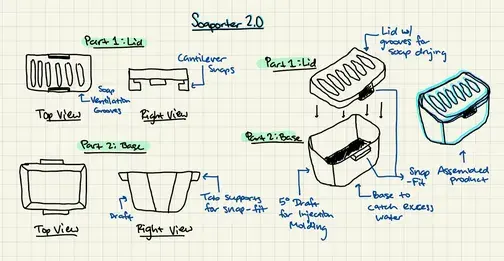 Soaporter 2.0
Part 1: Lid
Cantilever
Snaps
Soap
Ventilation
Grooves
Top View
Right View
Part 2: Base
Draft
Tabs supports
for snap-fit
Top View
Right View
Part 1: Lid
Lid w/
grooves for
soap drying
Part 2: Base
Snap
-Fit
5° Draft
for Injection
Molding
Base to
catch excess
water
Assembled
product